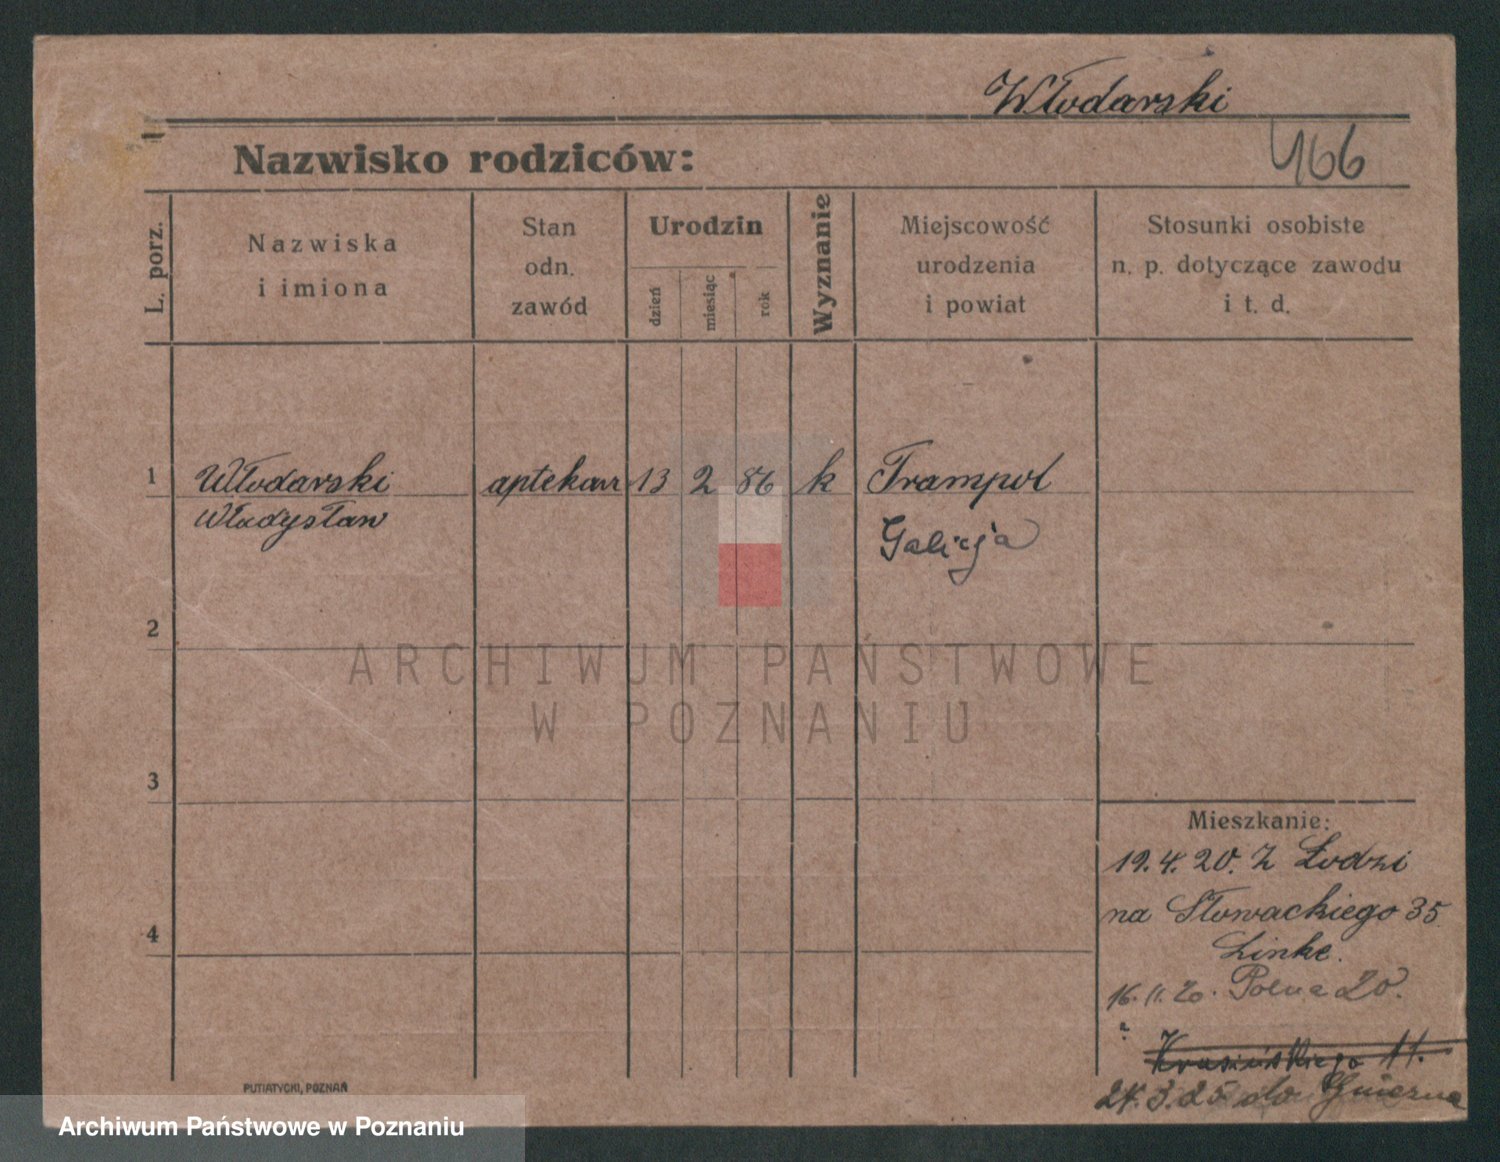 Włodarski
466
Nazwisko rodziców:
L. porz.
Nazwiska
i imiona
Stan
odn.
zawód
Urodzin
dzień
miesiąc
rok
Wyznanie
Miejscowość
urodzenia
i powiat
Stosunki osobiste
n. p. dotyczące zawodu
i t. d.
1
Włodarski
Władysław
aptekarz
13
2
86
k
Trampol
Galicja
2
ARCHIWUM PAŃSTWOWE
W POZNANIU
3
4
Mieszkanie:
19.4.20. z Łodzi
na Słowackiego 35.
Linke.
16.11.20. Polna 20.
Krasińskiego 11.
24.3.25 do
PUTIATYCKI, POZNAŃ
Archiwum Państwowe w Poznaniu